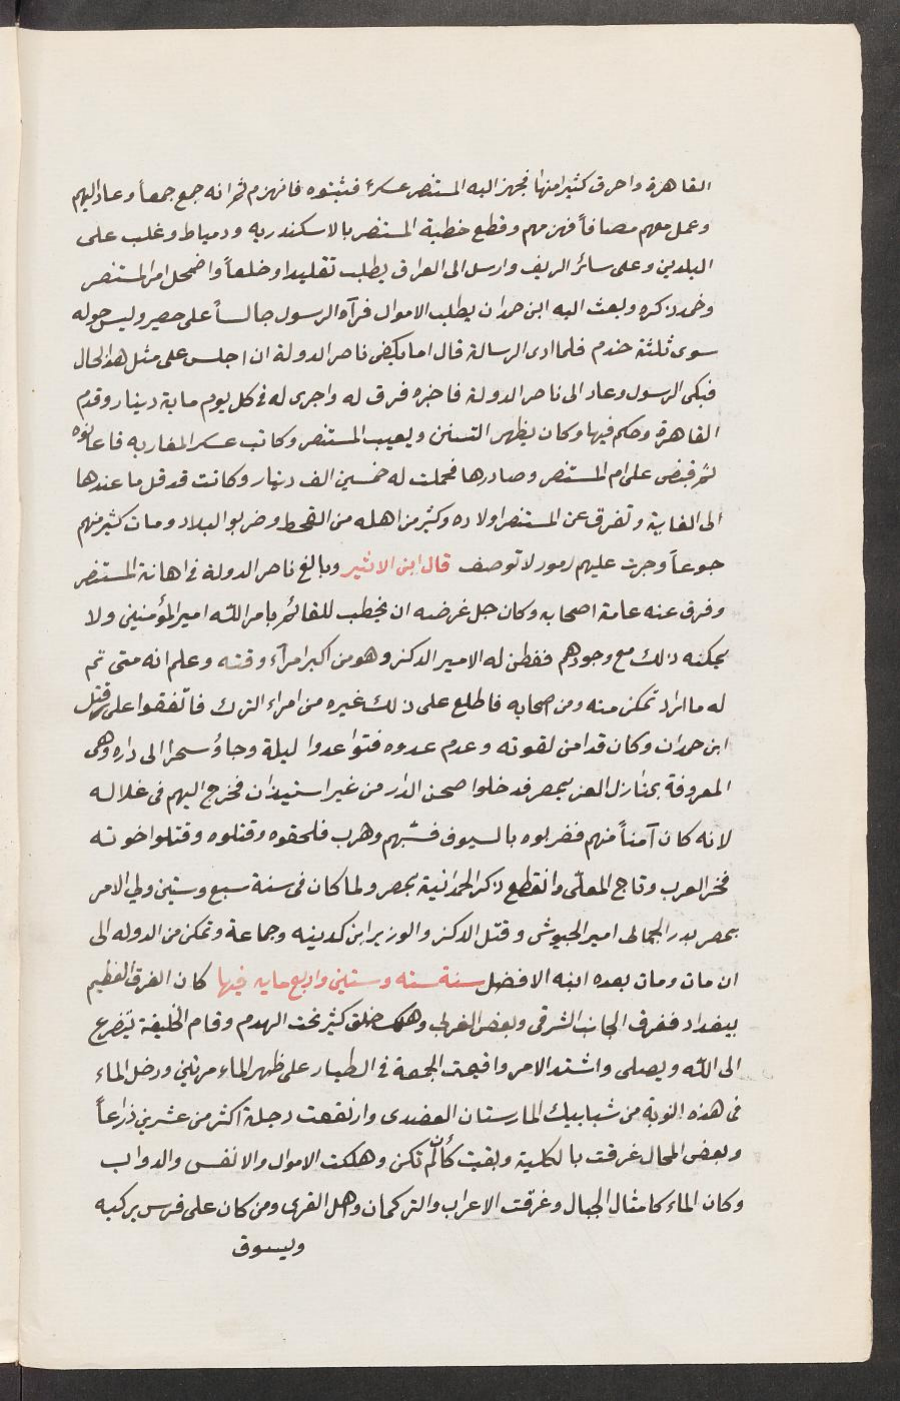 القاهرة واحرق كثيرا منها فجهز اليه المستنصر عسكرا فثبتوه فانهزم ثم انه جمع جمعاً وعاد اليهم
وعمل معهم مصافاً فهزمهم وقطع خطبة المستنصر بالاسكندريه ودمياط وغلب على
البلدين وعلى سائر الريف وارسل الى العراق يطلب تقليدا وخلعاً واضمحل امر المستنصر
وخمد ذكره وبعث اليه ابن حمدان يطلب الاموال فرآه الرسول جالساً على حصير وليس حوله
سوى ثلثة خدم فلما ادى الرسالة قال اما يكفى ناصر الدولة ان اجلس على مثل هذا الحال
فبكى الرسول وعاد الى ناصر الدولة فاخبره فرق له واجرى له فى كل يوم ماية دينار وقدم
القاهرة وحكم فيها وكان يظهر التسنن ويعيب المستنصر وكاتب عسكر المغاربه فاعانوه
ثم قبض على ام المستنصر وصادرها فحملت له خمسين الف دينار وكانت قد قل ما عندها
الى الغاية وتفرق عن المستنصر اولاده وكثير من اهله من القحط وضربوا البلاد ومات كثير منهم
جوعاً وجرت عليهم امور لا توصف قال ابن الاثير وبالغ ناصر الدولة فى اهانة المستنصر
وفرق عنه عامة اصحابه وكان جل غرضه ان يخطب للقائم بامر الله امير المؤمنين ولا
يمكنه ذلك مع وجودهم ففطن له الامير الدكز وهو من اكبر امرآء وقته وعلم انه متى تم
له ما اراد تمكن منه ومن اصحابه فاطلع على ذلك غيره من امراء الترك فاتفقوا على قتل
ابن حمدان وكان قد امن لقوته وعدم عدوه فتواعدوا ليلة وجاؤ سحرا الى داره وهى
المعروفة بمنازل العز بمصر فدخلوا صحن الدار من غير استيذان فخرج اليهم فى غلاله
لانه كان آمناً منهم فضربوه بالسيوف فسبهم وهرب فلحقوه وقتلوه وقتلوا اخوته
فخر العرب وتاج المعلّى وانقطع ذكر الحمدانية بمصر ولما كان فى سنة سبع وستين ولي الامر
بمصر بدر الجمالى امير الجيوش وقتل الدكز والوزير ابن كدينه وجماعة وتمكن من الدوله الى
ان مات ومات بعده ابنه الافضل سنة سته وستين واربع مايه فيها كان الغرق العظيم
ببغداد فغرق الجانب الشرقى وبعض الغربى وهلك خلق كثير تحت الهدم وقام الخليفة يتضرع
الى الله ويصلى واشتد الامر واقيمت الجمعة فى الطيار على ظهر الماء مرتين ودخل الماء
فى هذه النوبة من شبابيك المارستان العضدى وارتفعت دجلة اكثر من عشرين ذراعاً
وبعض المحال غرقت بالكلية وبقيت كأن لم تكن وهلكت الاموال والانفس والدواب
وكان الماء كامثال الجبال وغرقت الاعراب والتركمان واهل القرى ومن كان على فرس يركبه
ويسوق